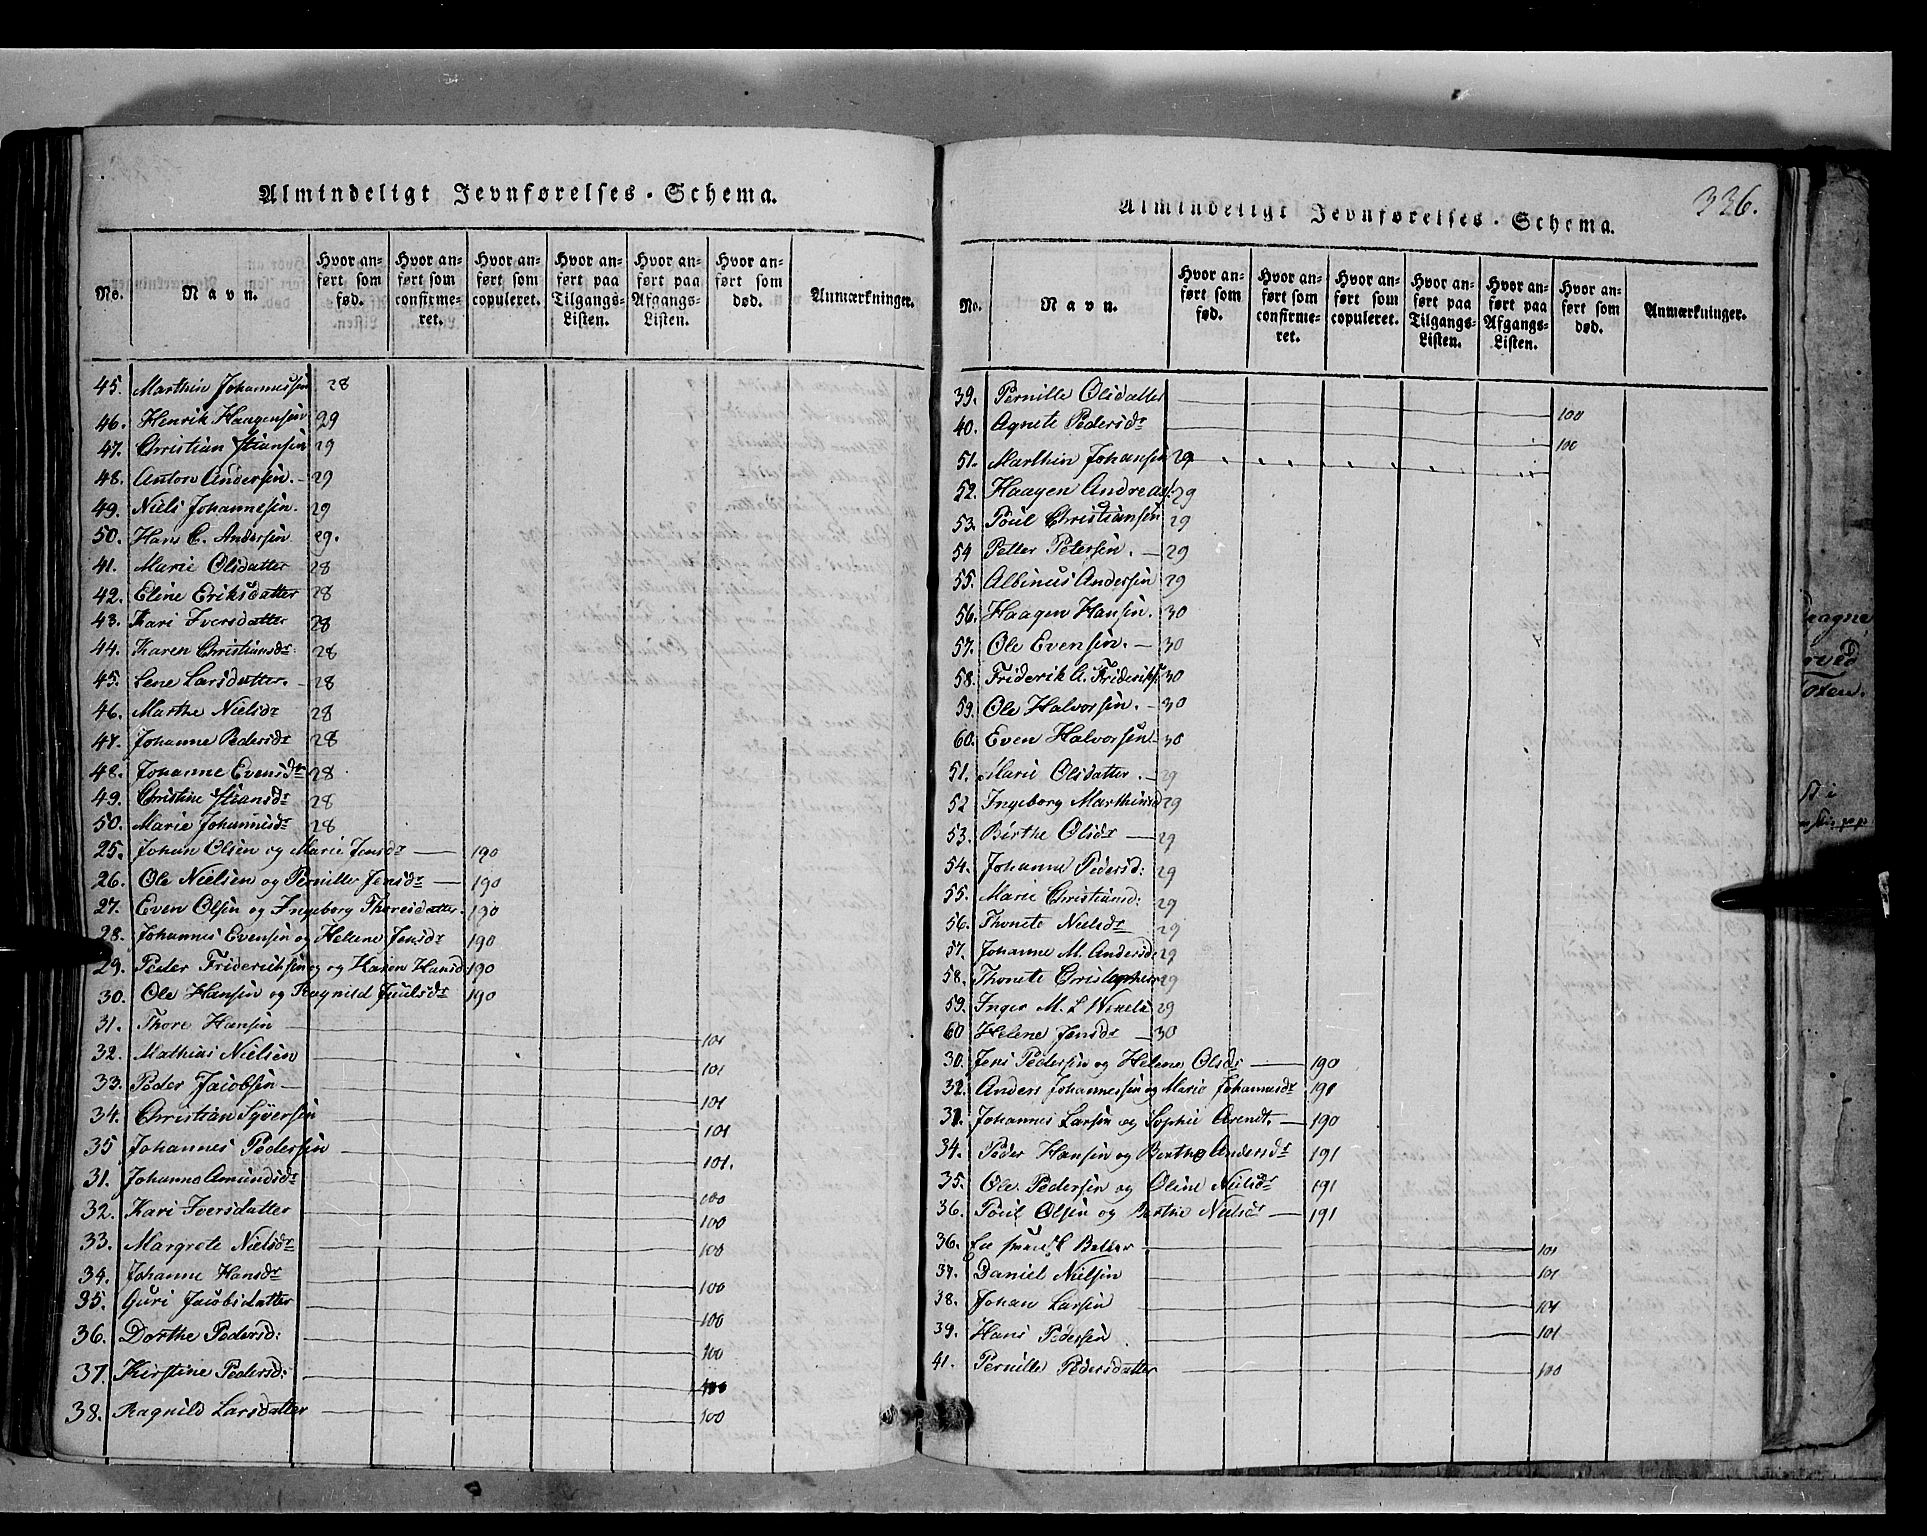 Almindeligt Jevnførelses-Schema.
No. Navn. Hvor anført som fød. Hvor anført som confirmeret. Hvor anført som copuleret. Hvor anført paa Tilgangs-Listen. Hvor anført paa Afgangs-Listen. Hvor anført som død. Anmærkninger.
45. Marthin Johannessen 28
46. Henrik Haagensen 29
47. Christian Hansen 29
48. Anton Andersen. - 29
49. Niels Johannesen. 29
50. Hans C. Andersen 29.
41. Marie Olsdatter 28
42. Eline Eriksdatter 28
43. Kari Iversdatter 28
44. Karen Christiansdr 28
45. Lene Larsdatter. - 28
46. Marthe Nielsdr 28
47. Johanne Pedersdr 28
48. Johanne Evensdr 28
49. Christine Hansdr 28
50. Marie Johannisdr 28
25. Johan Olsen og Marie Jensdr — 190
26. Ole Nielsen og Pernille Jensdr — 190
27. Even Olsen og Ingeborg Thoresdatter. 190
28. Johannes Evensen og Helene Jensdr 190
29. Peder Frideriksen og Karen Hansd: 190
30. Ole Hansen og Ragnild Juulsdr 190
31. Thore Hansen 101
32. Mathias Nielsen 101
33. Peder Jacobsen 101
34. Christian Syversen 101
35 Johannes Pedersen 101.
31. Johanne Amundsdr 100
32. Kari Iversdatter 100
33. Margrete Nielsdr 100
34. Johanne Hansdr 100
35. Guri Jacobsdatter 100
36. Dorthe Pedersd: 100
37. Kirstine Pedersd: 100
38. Ragnild Larsdatter 100
336.
Almindeligt Jevnførelses-Schema.
No. Navn. Hvor anført som fød. Hvor anført som confirmeret. Hvor anført som copuleret. Hvor anført paa Tilgangs-Listen. Hvor anført paa Afgangs-Listen. Hvor anført som død. Anmærkninger.
39. Pernille Olsdatter 100
40. Agnete Pedersdr 100
51. Marthin Johansen 29
52. Haagen Andreas: 29
53. Poul Christiansen 29
54 Petter Petersen. — 29
55. Albinus Andersen 29
56. Haagen Hansen. 30
57. Ole Evensen. — 30
58. Friderik A. Frideriks: 30
59. Ole Halvorsen. — 30
60. Even Halvorsen. 30
51. Marie Olsdatter. — 29
52 Ingeborg Marthinsd 29
53. Birthe Olsdr — 29
54. Johanne Pedersd: 29
55. Marie Christiansd: 29
56. Thonete Nielsdr 29
57. Johanne M. Andersd: 29
58. Thonete Christophers 29
59. Inger M. L 29
60 Helene Jensdr — 30
30. Jens Pedersen og Helene Olsdr — 190
32. Anders Johannessen og Marie Johannesdr 191
31. Johannes Larsen og Sophie Arendt. — 190
34. Peder Hansen og Berthe Andersdr 191
35. Ole Pedersen og Oline Nielsdr 191
36. Poul Olsen og Berthe Nielsdr — 191
36. En 101
37. Daniel Nielsen 101
38. Johan Larsen 101
39. Hans Pedersen 101
41. Pernille Pedersdatter 100